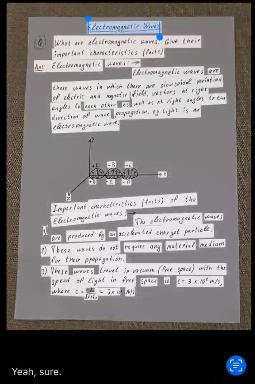 Electromagnetic Wave
Q What are electromagnetic waves. Give their
important characteristics (facts)
Ans: Electromagnetic waves: →
Electromagnetic waves are
those waves in which there are sinusoidal variation
of electric and magnetic field vectors at right
angles to each other as well as at right angles to the
direction of wave propagation. eg light is an
electromagnetic wave.
Important characteristics (facts) of the
Electromagnetic waves:
The electromagnetic waves
are produced by an accelerated charged particle.
2) These waves do not require any material medium
for their propagation.
3) These waves travel in vacuum (free space) with the
speed of light in free space ie c = 3 × 10⁸ m/s,
where c =
Yeah, sure.